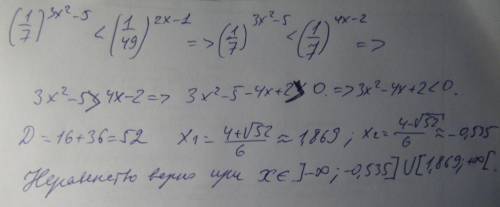 (1/7)^{3x²-5} < (1/49)^{2x-1} => (1/7)^{3x²-5} < (1/7)^{4x-2} =>
3x²-5 > 4x-2 => 3x²-5-4x+2 > 0. => 3x²-4x+2<0.
D=16+36=52 x₁=(4+√52)/6 ≈ 1,869; x₂=(4-√52)/6 ≈ -0,535
Неравенство верно при x∈]-∞;-0,535]∪[1,869;+∞[.